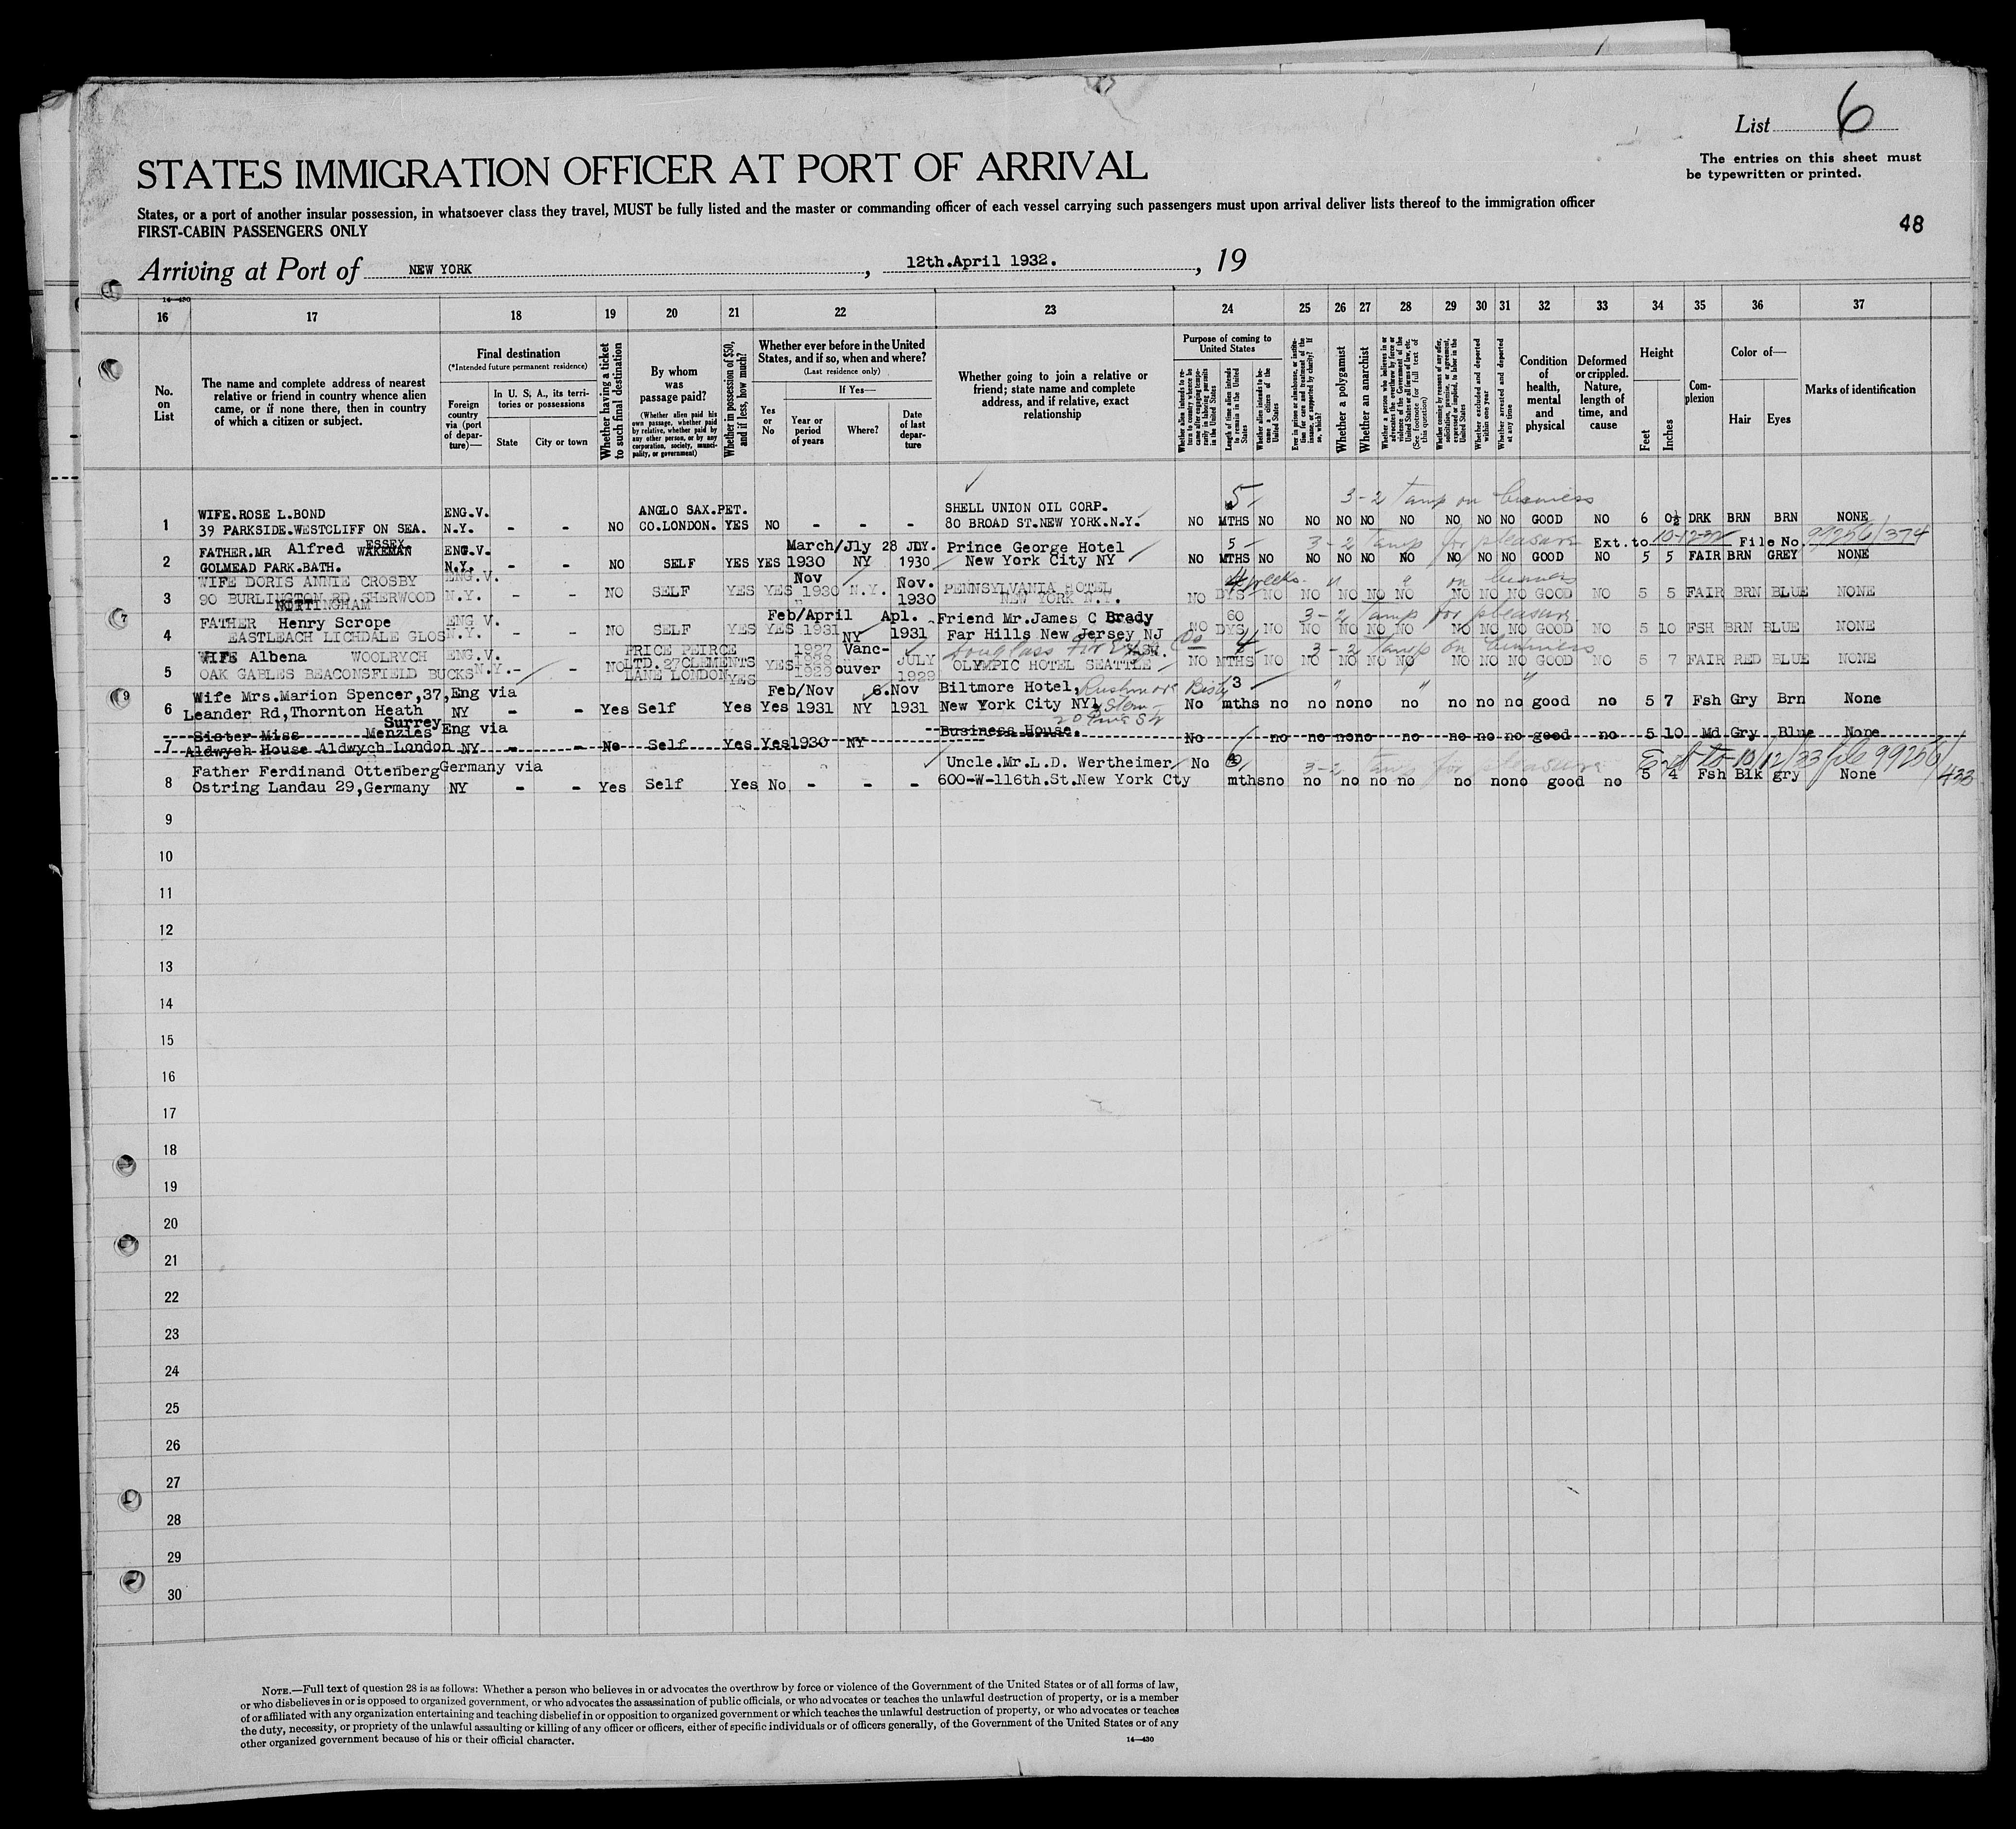 List 6
STATES IMMIGRATION OFFICER AT PORT OF ARRIVAL
The entries on this sheet must
be typewritten or printed.
States, or a port of another insular possession, in whatsoever class they travel, MUST be fully listed and the master or commanding officer of each vessel carrying such passengers must upon arrival deliver lists thereof to the immigration officer
FIRST-CABIN PASSENGERS ONLY
48
Arriving at Port of NEW YORK , 12th.April 1932. , 19
14—430
16 17 18 19 20 21 22 23 24 25 26 27 28 29 30 31 32 33 34 35 36 37
No. on List
The name and complete address of nearest relative or friend in country whence alien came, or if none there, then in country of which a citizen or subject.
Final destination
(*Intended future permanent residence)
Foreign country via (port of departure)—
In U. S. A., its territories or possessions
State
City or town
Whether having a ticket to such final destination
By whom was passage paid?
(Whether alien paid his own passage, whether paid by relative, whether paid by any other person, or by any corporation, society, municipality, or government)
Whether in possession of $50, and if less, how much?
Whether ever before in the United States, and if so, when and where?
(Last residence only)
Yes or No
If Yes—
Year or period of years
Where?
Date of last departure
Whether going to join a relative or friend; state name and complete address, and if relative, exact relationship
Purpose of coming to United States
Whether alien intends to return to country whence he came after engaging temporarily in laboring pursuits in the United States
Length of time alien intends to remain in the United States
Whether alien intends to become a citizen of the United States
Ever in prison or almshouse, or institution for care and treatment of the insane, or supported by charity? If so, which?
Whether a polygamist
Whether an anarchist
Whether a person who believes in or advocates the overthrow by force or violence of the Government of the United States or all forms of law, etc. (See footnote for full text of this question)
Whether coming by reasons of any offer, solicitation, promise, or agreement, expressed or implied, to labor in the United States
Whether excluded and deported within one year
Whether arrested and deported at any time
Condition of health, mental and physical
Deformed or crippled. Nature, length of time, and cause
Height
Feet
Inches
Complexion
Color of—
Hair
Eyes
Marks of identification
5 3-2 Temp on business
WIFE.ROSE L.BOND ENG.V. ANGLO SAX.PET. SHELL UNION OIL CORP.
1 39 PARKSIDE.WESTCLIFF ON SEA. N.Y. - - NO CO.LONDON. YES NO - - - 80 BROAD ST.NEW YORK.N.Y. NO MTHS NO NO NO NO NO NO NO NO GOOD NO 6 0½ DRK BRN BRN NONE
ESSEX
FATHER.MR Alfred WAKEMAN ENG.V. March/Jly 28 JLY. Prince George Hotel 5 3-2 Temp for pleasure Ext.to 10-12-32 File No. 99256/374
2 GOLMEAD PARK.BATH. N.Y. - - NO SELF YES YES 1930 NY 1930 New York City NY NO MTHS NO NO NO NO NO NO NO NO GOOD NO 5 5 FAIR BRN GREY NONE
WIFE DORIS ANNIE CROSBY ENG.V. Nov Nov. PENNSYLVANIA HOTEL 4 weeks " " on business
3 90 BURLINGTON RD SHERWOOD N.Y. - - NO SELF YES YES 1930 N.Y. 1930 NEW YORK N.Y. NO DYS NO NO NO NO NO NO NO NO GOOD NO 5 5 FAIR BRN BLUE NONE
NOTTINGHAM
FATHER Henry Scrope ENG V. Feb/April Apl. Friend Mr.James C Brady 60 3-2 Temp for pleasure
4 EASTLEACH LICHDALE GLOS N.Y. - - NO SELF YES YES 1931 NY 1931 Far Hills New Jersey NJ NO DYS NO NO NO NO NO NO NO NO GOOD NO 5 10 FSH BRN BLUE NONE
WIFE Albena WOOLRYCH ENG.V. PRICE PEIRCE 1927 Vanc- Douglass Fir Co 4 3-2 Temp on business
5 OAK GABLES BEACONSFIELD BUCKS N.Y. - - NO LTD.27CLEMENTS LANE LONDON YES YES 1928 1929 ouver JULY 1929 OLYMPIC HOTEL SEATTLE NO MTHS NO NO NO NO NO NO NO NO GOOD NO 5 7 FAIR RED BLUE NONE
Wife Mrs.Marion Spencer,37, Eng via Feb/Nov 6.Nov Biltmore Hotel, 3 " " "
6 Leander Rd,Thornton Heath NY - - Yes Self Yes Yes 1931 NY 1931 New York City NY No mths no no no no no no no no good no 5 7 Fsh Gry Brn None
Surrey 20 Pine St
Sister Miss Menzies Eng via Business House.
7 Aldwych House Aldwych London NY - - No Self Yes Yes 1930 NY No no no no no no no no no good no 5 10 Md Gry Blue None
Father Ferdinand Ottenberg Germany via Uncle.Mr.L.D. Wertheimer No 3-2 Temp for pleasure Ext to 10/12/33 file 99256/433
8 Ostring Landau 29,Germany NY - - Yes Self Yes No - - - 600-W-116th.St.New York Cty mths no no no no no no no no good no 5 4 Fsh Blk gry None
9
10
11
12
13
14
15
16
17
18
19
20
21
22
23
24
25
26
27
28
29
30
NOTE.—Full text of question 28 is as follows: Whether a person who believes in or advocates the overthrow by force or violence of the Government of the United States or of all forms of law,
or who disbelieves in or is opposed to organized government, or who advocates the assassination of public officials, or who advocates or teaches the unlawful destruction of property, or is a member
of or affiliated with any organization entertaining and teaching disbelief in or opposition to organized government or which teaches the unlawful destruction of property, or who advocates or teaches
the duty, necessity, or propriety of the unlawful assaulting or killing of any officer or officers, either of specific individuals or of officers generally, of the Government of the United States or of any
other organized government because of his or their official character.
14—430